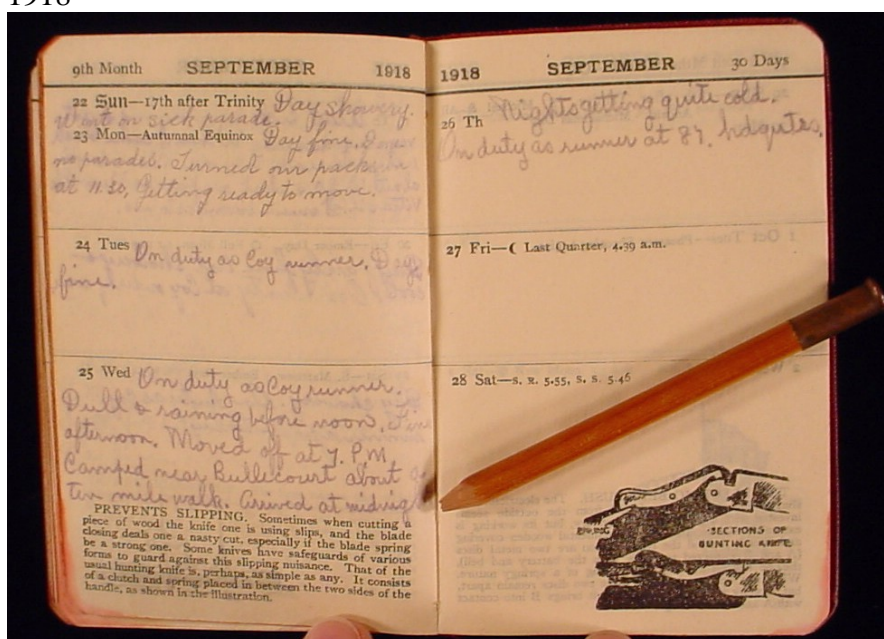 1918
9th Month SEPTEMBER 1918
22 Sun—17th after Trinity Day showery.
Went on sick parade.
23 Mon—Autumnal Equinox Day fine.
no parades. Turned our packs in
at 11.30, Getting ready to move.
24 Tues On duty as Coy runner. Day
fine.
25 Wed On duty as Coy runner.
Dull & raining before noon, Fine
afternoon. Moved off at 7. P.M
Camped near Bullecourt about a
ten mile walk. Arrived at midnigh
PREVENTS SLIPPING. Sometimes when cutting a
piece of wood the knife one is using slips, and the blade
closing deals one a nasty cut, especially if the blade spring
be a strong one. Some knives have safeguards of various
forms to guard against this slipping nuisance. That of the
usual hunting knife is, perhaps, as simple as any. It consists
of a clutch and spring placed in between the two sides of the
handle, as shown in the illustration.
1918 SEPTEMBER 30 Days
26 Th Nights getting quite cold.
On duty as runner at 87. hdqutrs.
27 Fri—☾ Last Quarter, 4.39 a.m.
28 Sat—S. R. 5.55, S. S. 5.46
SECTIONS OF
HUNTING KNIFE